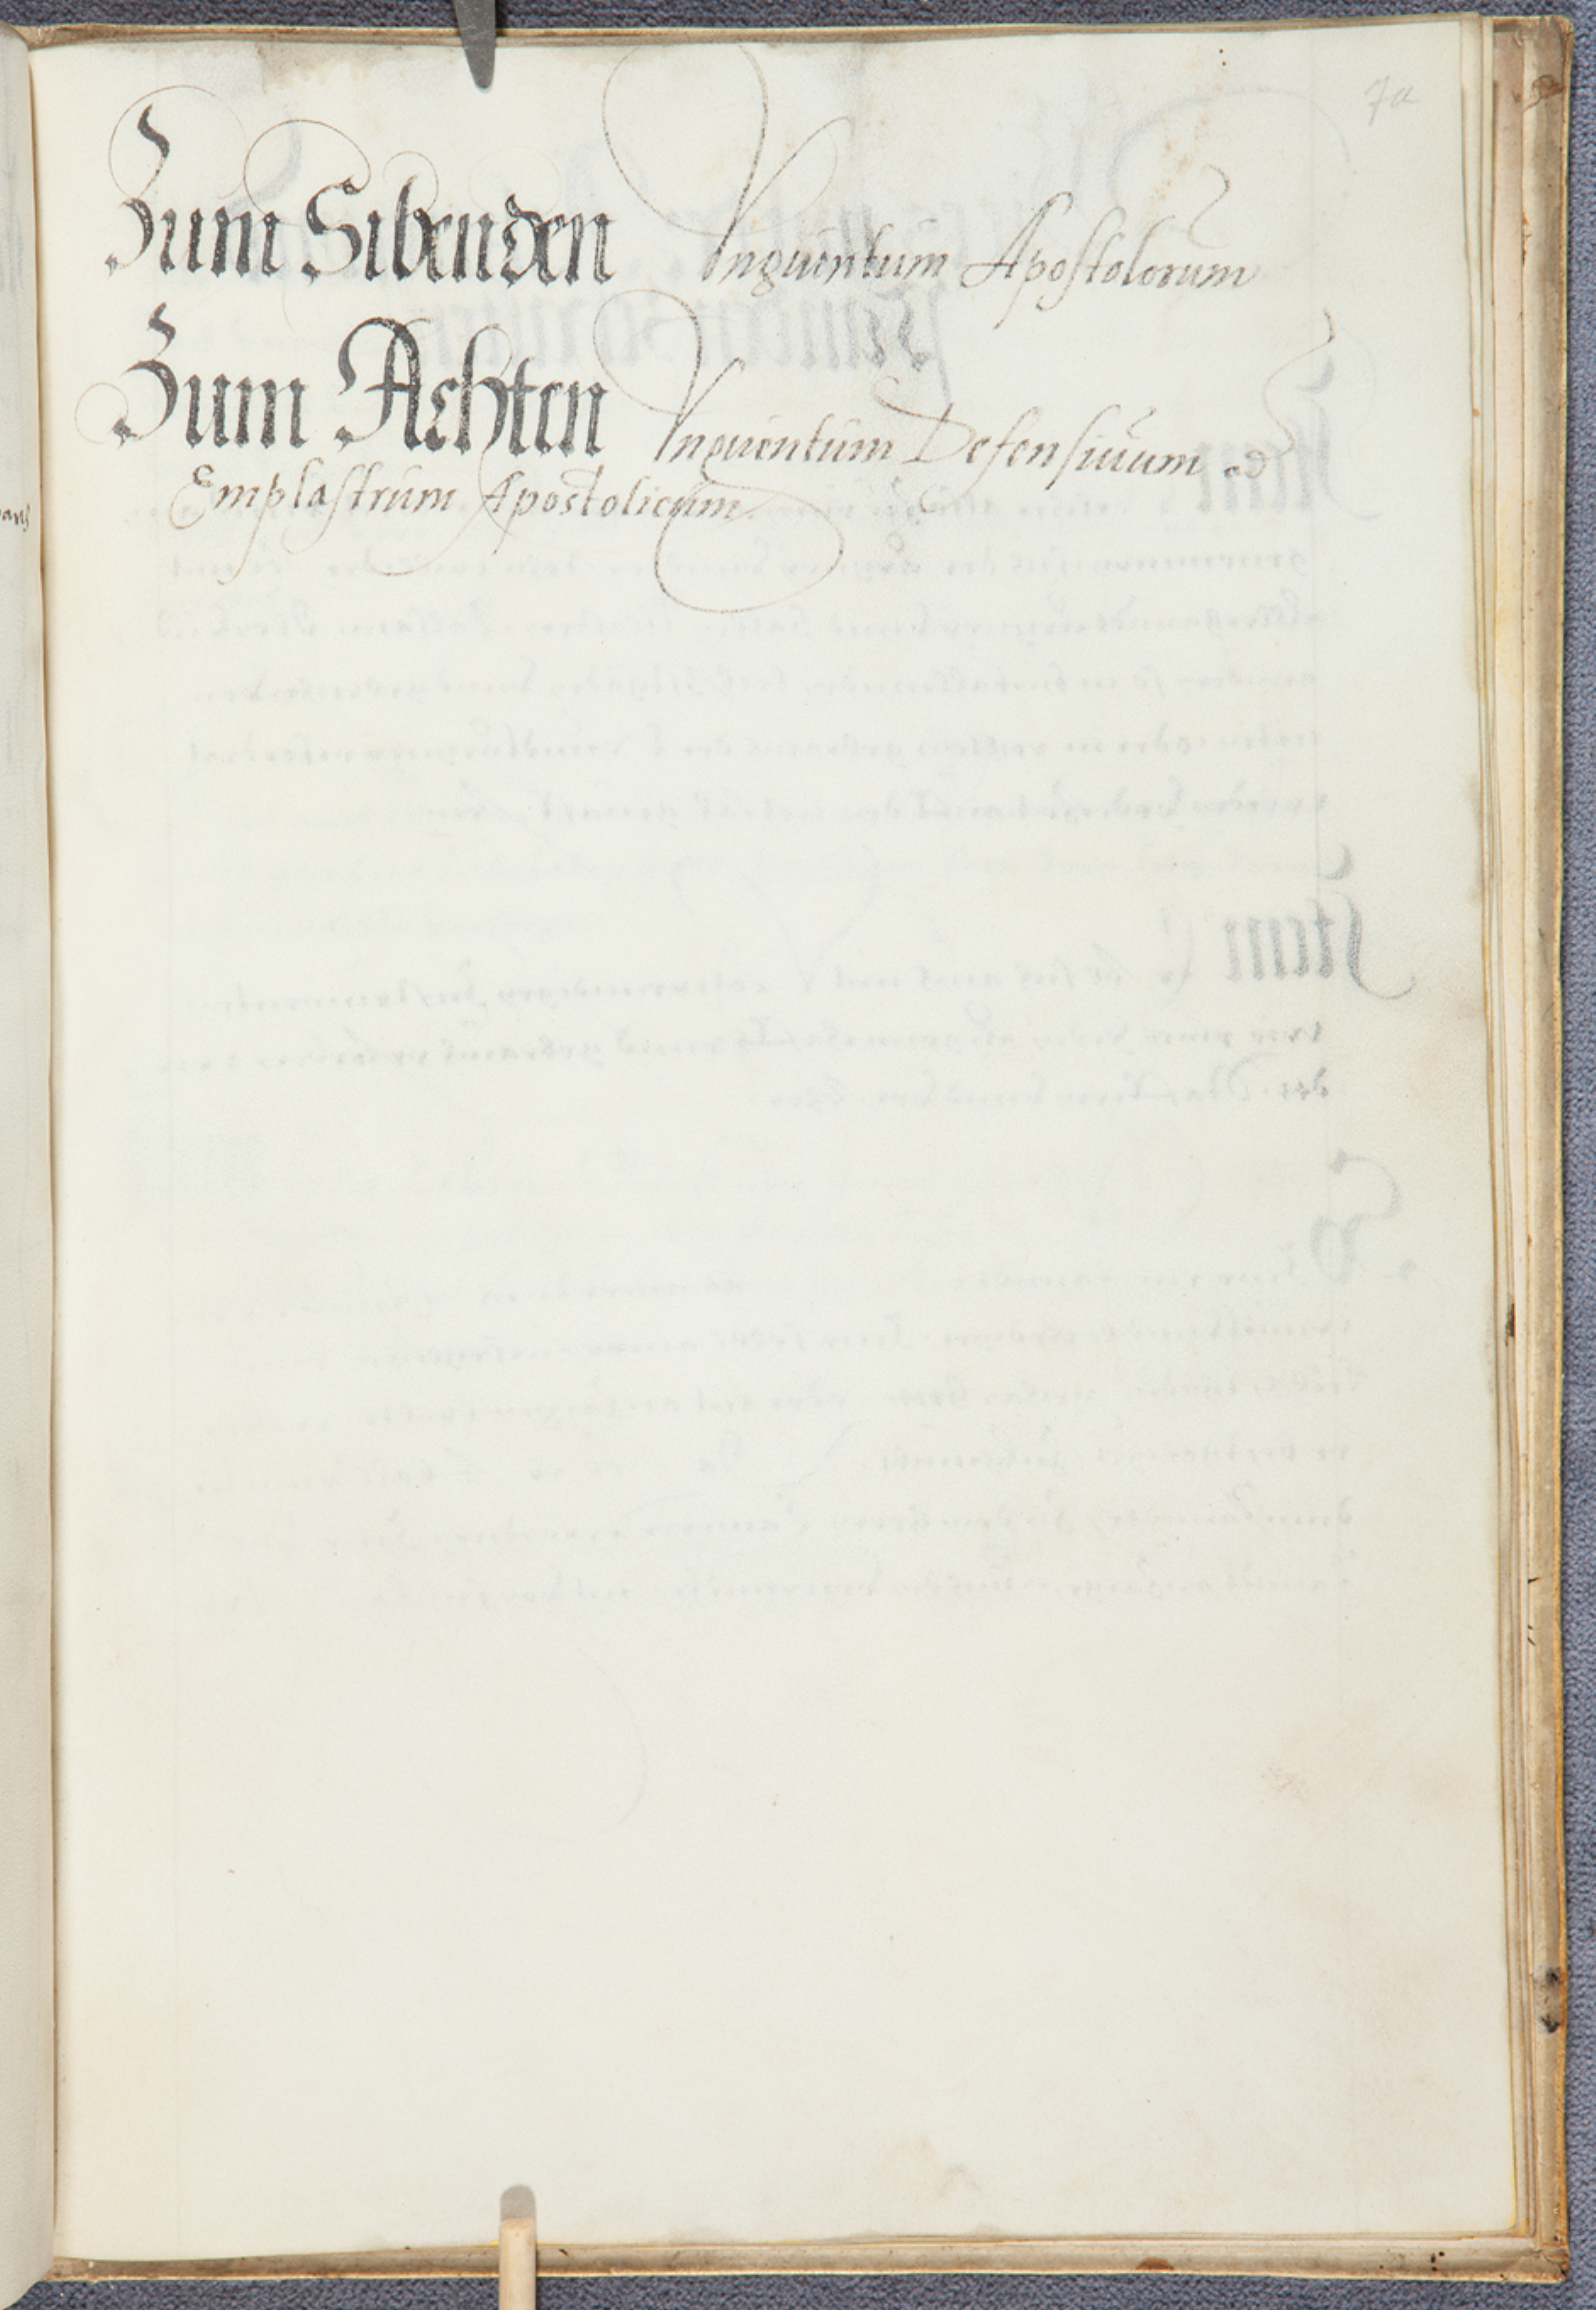 7a
Zum Sibenden Vnguentum Apostolorum
Zum Achten Vnguentum Defensiuum
Emplastrum Apostolicum